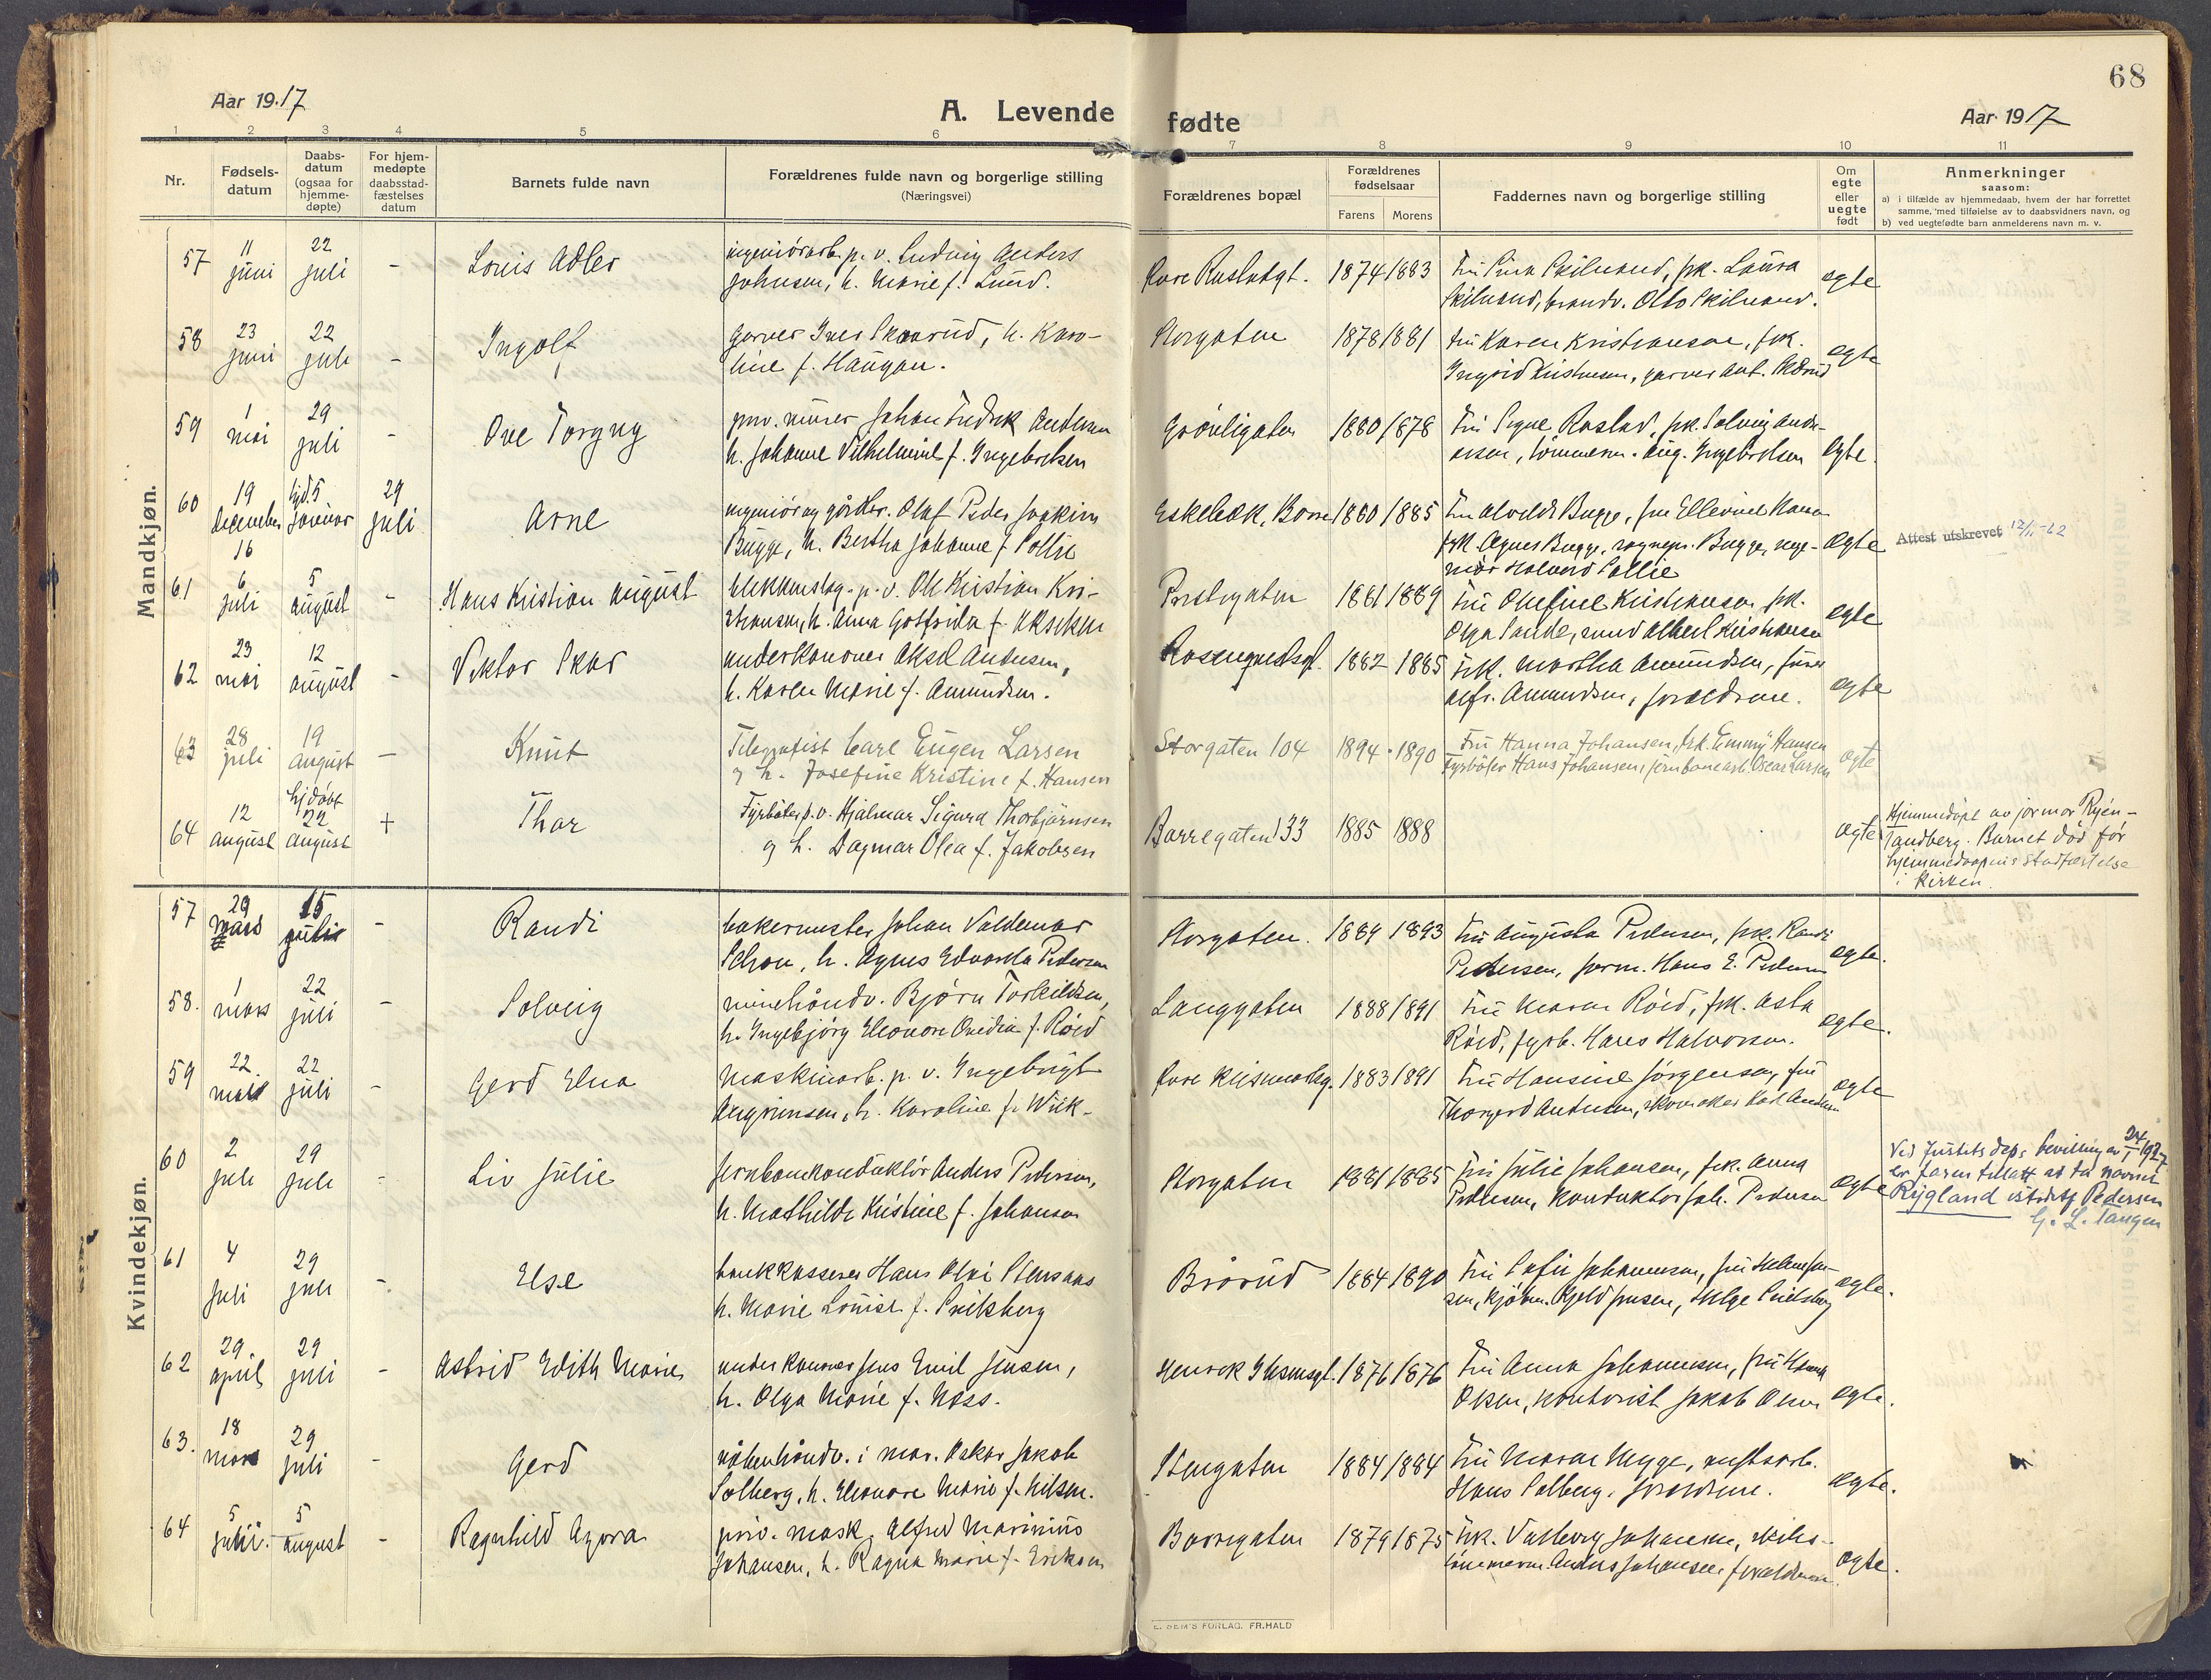 68
Aar 1917
A. Levende fødte
Aar 1917
1 2 3 4 5 6 7 8 9 10 11
Nr.
Fødsels-
datum
Daabs-
datum
(ogsaa for
hjemme-
døpte)
For hjem-
medøpte
daabsstad-
fæstelses
datum
Barnets fulde navn
Forældrenes fulde navn og borgerlige stilling
(Næringsvei)
Forældrenes bopæl
Forældrenes
fødselsaar
Farens Morens
Faddernes navn og borgerlige stilling
Om
egte
eller
uegte
født
Anmerkninger
saasom:
a) i tilfælde av hjemmedaab, hvem der har forrettet
samme, med tilføielse av to daabsvidners navn, og
b) ved uegtefødte barn anmelderens navn m. v.
Mandkjøn.
57 11 juni 22 juli - Louis Adler
p. v. Ludvig Anders
Johnsen, h. Marie f. Lund.
1874 1883 egte
58 23 juni 22 juli - Ingolf
garver Iver Skaarud, h. Karo-
line f. Haugan.
Storgaten 1878 1881 fru Karen Kristiansen, frk.
egte
59 1 mai 29 juli - Ove Torgny
murer Johan Fredrik Andersen
h. Johanne Vilhelmine f. Ingebretsen
Grønligaten 1880 1878 Fru Signe Rastad, frk. Solveig Andr-
Aug. Ingebretsen egte.
60 19 december 16 hjd. 5 januar 29 juli Arne
Olaf Peder Joakim
Bugge, h. Bertha Johanne f. Sollie
Eskebæk, Borre 1880 1885
frk. Agnes Bugge, Bugge, egte
Halvard Sollie
Attest utskrevet 12/11-62
61 6 juli 5 august - Hans Kristian August
p. v. Ole Kristian Kri-
stiansen, h. Anna Gotfrida f.
Prestegaten 1881 1889 Fru Olefine Kristiansen frk.
Olga Sande, Albert Kristiansen egte
62 23 mai 12 august - Viktor Skar
underkanoner Aksel Andersen,
h. Karen Marie f. Amundsen.
Rosenqvistsgt. 1882 1885 Frk. Martha Amundsen,
Alfr. Amundsen, forældrene. egte
63 28 juli 19 august - Knut
Telegrafist Carl Eugen Larsen
og h. Josefine Kristine f. Hansen
Storgaten 104 1894 1890 Fru Hanna Johansen, frk. Emmy Hansen
Fyrbøter Hans Johansen, jernbanearb. Oscar Larsen egte
64 12 august hjdøbt 22 august + Thor
Fyrbøter p. v. Hjalmar Sigurd Thorbjørnsen
og h. Dagmar Olea f. Jakobsen
Borregaten 133 1885 1888 egte
Hjemmedøpt av jormor Ryen-
Tandberg. Barnet død før
hjemmedaapens stadfæstelse
i kirken.
Kvindekjøn.
57 29 mars 15 juli - Randi
bakermester Johan Valdemar
Schou, h. Agnes Edvarda Pedersen
Storgaten. 1889 1893 Fru Augusta Pedersen, frk. Randi
Pedersen, Hans E. Pedersen egte.
58. 1 mars 22 juli - Solveig
minehåndv. Bjørn Torkildsen,
h. Ingebjørg Eleonore Ovidia f. Røed
Langgaten 1888 1891 Fru Maren Røed, frk. Asta
Røed, fyrb. Hans Halvorsen. egte.
59 22. 22 juli - Gerd Elna
Maskinarb. p. v. Ingebrigt
h. Karoline f. Wiik-
1883 1891 Fru Hansine Jørgensen, fru
Thorgerd Andersen, skomaker egte
60 2 juli 29 juli - Liv Julie
jernbanekonduktør Anders Pedersen,
h. Mathilde Kristine f. Johansen
Storgaten 1881 1885 Fru Julie Johansen, frk. Anna
Pedersen, konduktør Joh. Pedersen egte
Ved Justitsdeps bevilling av 24/1 1927
er faren tillatt at ta navnet
Rygland istedetf Pedersen
G. L. Tangen
61 4 juli 29 juli - Else
bankkasserer Hans Olai Stensaas
h. Marie Louise f.
Brårud 1884 1890 Fru Sofie Johannesen,
sen, kjøbm. Kjeld Jensen, Helge egte.
62 29. april 29 juli - Astrid Edith Marie
underkanoner Jens Emil Jensen,
h. Olga Marie f. Næss.
Henrik Ibsensgt. 1876 1876 Fru Anna Johannesen, fru
Olsen, kontorist Jakob Olsen egte.
63. 18 mars 29 juli - Gerd
i mar. Oskar Jakob
Solberg, h. Eleonore Marie f. Nilsen.
Stengaten 1884 1884 Fru Maren Hegge, verftsarb.
Hans Solberg, forældrene. egte.
64 5 juli. 5 august - Ragnhild Agora
priv. mask. Alfred Marinius
Johansen, h. Ragna Marie f. Eriksen
Borregaten 1879 1875 Frk. Valborg Johansen, skibs-
tømmerm. Anders Johansen, forældrene. egte.
E. SEM'S FORLAG. FR.HALD